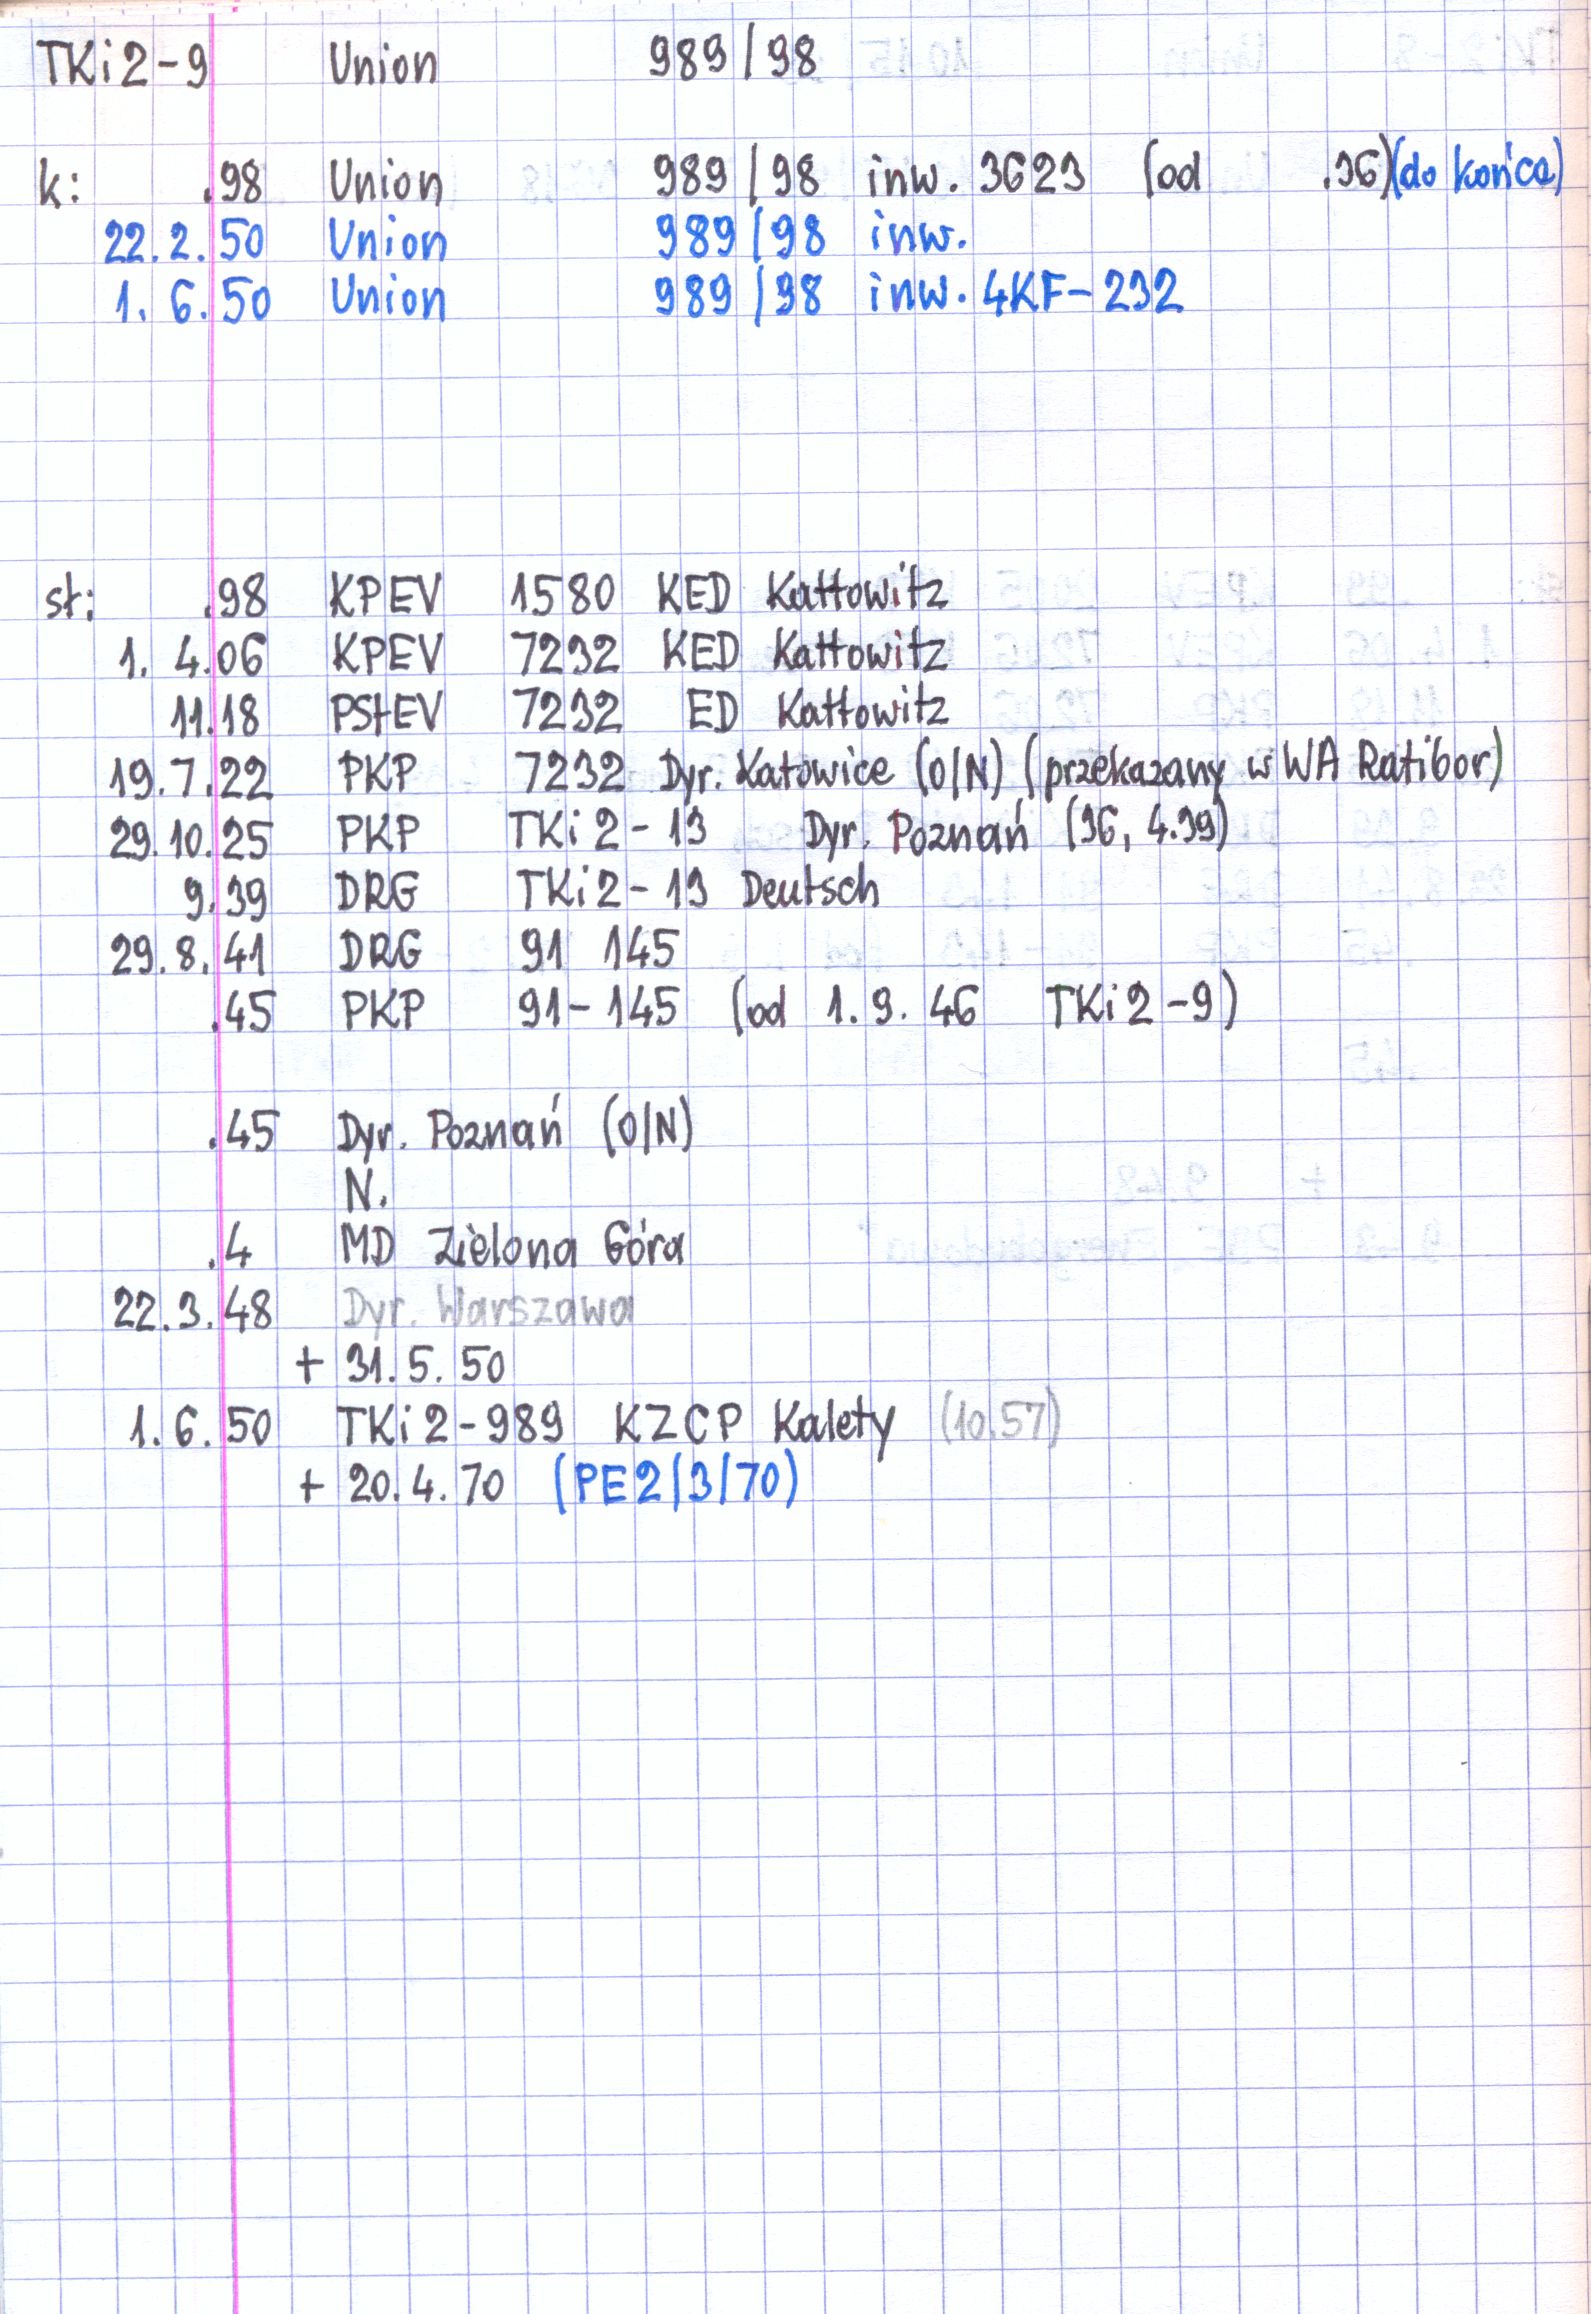 TKi2-9 Union 989/98
k: .98 Union 989/98 inw. 3623 (od .36) (do końca)
22.2.50 Union 989/98 inw.
1.6.50 Union 989/98 inw. 4KF-232
st: .98 KPEV 1580 KED Kattowitz
1.4.06 KPEV 7232 KED Kattowitz
11.18 PStEV 7232 ED Kattowitz
19.7.22 PKP 7232 Dyr. Katowice (O/N) (przekazany w WA Ratibor)
29.10.25 PKP TKi2-13 Dyr. Poznań (36, 4.39)
9.39 DRG TKi2-13 Deutsch
29.8.41 DRG 91 145
.45 PKP 91-145 (od 1.9.46 TKi2-9)
.45 Dyr. Poznań (O/N)
N.
.4 MD Zielona Góra
22.3.48 Dyr. Warszawa
+ 31.5.50
1.6.50 TKi2-989 KZCP Kalety (10.57)
+ 20.4.70 (PE2/3/70)